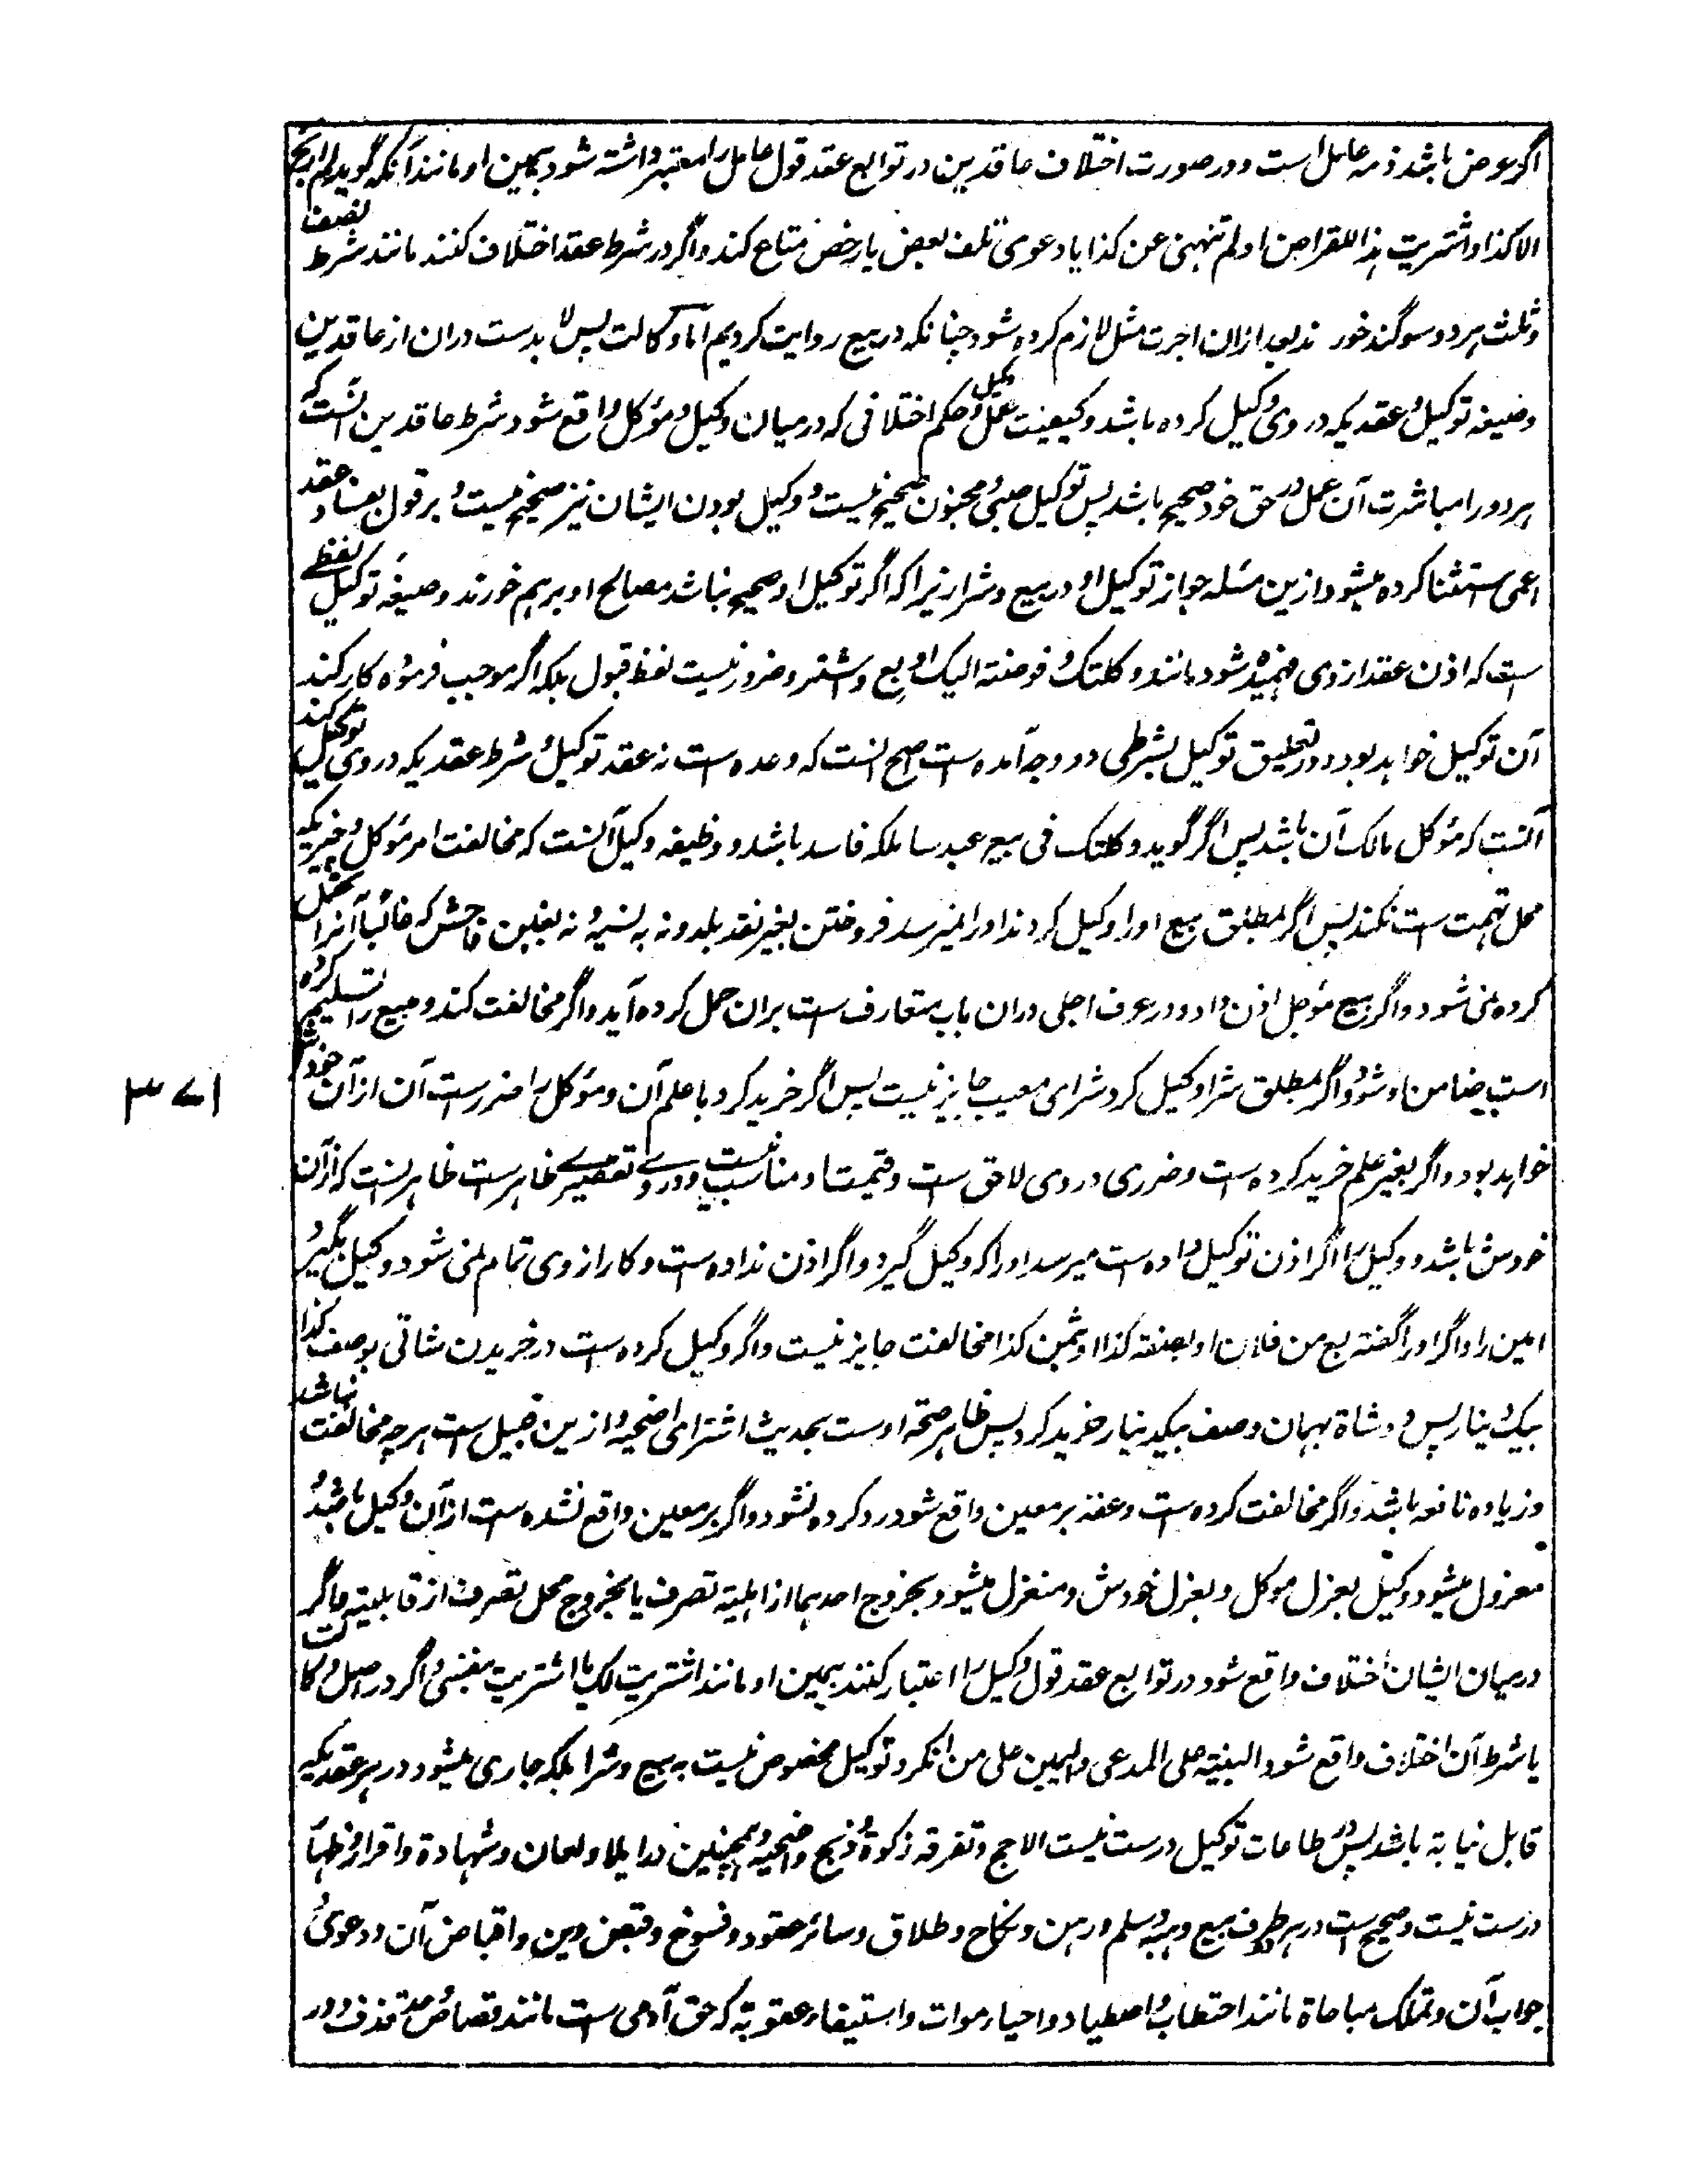 اگر عوض باشد ذمه عامل است و در صورت اختلاف عاقدین در توابع عقد قول عامل را معتبر داشته شود بیمین او مانند آنکه گوید لم اربح
الا کذا و اشتریت هذا للقراض او لم تنهنی عن کذا یا دعوی تلف بعض یا رخص متاع کند و اگر در شرط عقد اختلاف کنند مانند شرط نصف
و ثلث هر دو سوگند خورند بعد ازان اجرت مثل لازم کرده شود چنانکه در بیع روایت کردیم اما وکالت پس لا بدست دران از عاقدین
وصیغه توکیل و عقدیکه در وی وکیل کرده باشد و کیفیت عمل وکیل و حکم اختلافی که در میان وکیل و مؤکل واقع شود شرط عاقدین آنست که
هر دو را مباشرت آن عمل در حق خود صحیح باشد پس توکیل صبی و مجنون صحیح نیست و وکیل بودن ایشان نیز صحیح نیست و بر قول بفساد عقد
اعمی استثنا کرده میشود ازین مسئله جواز توکیل او در بیع و شرا زیرا که اگر توکیل او صحیح نباشد مصالح او برهم خورند و صیغه توکیل لفظی
ست که اذن عقد از وی فهمیده شود مانند وکلتک و فوضته الیک او بع و اشتر و ضرور نیست لفظ قبول بلکه اگر موجب فرموده کار کند
آن توکیل خواهد بود و در تعلیق توکیل بشرطی دو وجه آمده ست اصح آنست که وعده ست نه عقد توکیل و شرط عقدیکه در وی توکیل کند
آنست که مؤکل مالک آن باشد پس اگر گوید وکلتک فی بیع عبد ساملکه فاسد باشد و وظیفه وکیل آنست که مخالفت امر مؤکل و چیزیکه
محل تهمت ست نکند پس اگر بمطلق بیع او را وکیل کردند او را نمیرسد فروختن بغیر نقد بلد و نه به نسیه و نه بغبن فاحش که غالبا آنرا تحمل
کرده نمی شود و اگر ببیع مؤجل اذن داد و در عرف اجلی دران باب متعارف ست بران حمل کرده آید و اگر مخالفت کند و مبیع را تسلیم کرده
است ضامن او شود و اگر بمطلق شرا وکیل کرد شرای معیب جایز نیست پس اگر خرید کرد با علم آن و مؤکل را ضررست آن از آن خودش
خواهد بود و اگر بغیر علم خرید کرده ست و ضرری در وی لاحق ست و قیمت او مناسب نیست و در وے تقصیرے ظاهرست ظاهر آنست که از آن
خودش باشد و وکیل را اگر اذن توکیل داده ست میرسد او را که وکیل گیرد و اگر اذن نداده ست و کار از وی تمام نمی شود وکیل بگیرد
امین را و اگر او را گفته بع من فلان او بصفته کذا او بثمن کذا مخالفت جایز نیست و اگر وکیل کرده ست در خریدن شاتی بوصف کذا
بیک دینار پس دو شاة بهمان وصف بیک دینار خرید کرد پس ظاهر صحة اوست بحدیث اشترای اضحیه و ازین قبیل ست هر چه مخالفت نباشد
و زیاده نافعه باشد و اگر مخالفت کرده ست و عقد بر معین واقع شود رد کرده نشود و اگر بر معین واقع نشده ست از آن وکیل باشد و
معزول میشود وکیل بعزل موکل و بعزل خودش و منعزل میشود بخروج احدهما از اهلیة تصرف یا بخروج محل تصرف از قابلیته و اگر
در میان ایشان اختلاف واقع شود در توابع عقد قول وکیل را اعتبار کنند بیمین او مانند اشتریت لک یا اشتریت لنفسی و اگر در اصل وکالت
یا شرط آن اختلاف واقع شود البینة علی المدعی والیمین علی من انکر و توکیل مخصوص نیست به بیع و شرا بلکه جاری میشود در هر عقدیکه
قابل نیابة باشد پس در طاعات توکیل درست نیست الا حج و تفرقه زکوة و ذبح اضحیه و همچنین در ایلا و لعان و شهادة و اقرار و ظهار
درست نیست و صحیح ست در هر طرف بیع و هبه و سلم و رهن و نکاح و طلاق و سائر عقود و فسوخ و قبض دین و اقباض آن و دعوی و
جواب آن و تملک مباحاة مانند احتطاب و اصطیاد و احیاء موات و استیفاء عقوبة که حق آدمی ست مانند قصاص و حد قذف و در
۳۷۱